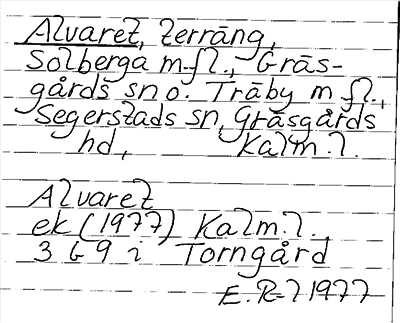 Alvaret, terräng,
Solberga m.fl., Gräs-
gårds sn o. Träby m fl.,
Segerstads sn, Gräsgårds
hd, Kalm.l.
Alvaret
ek (1977) Kalm.l.
3 G 9 i Torngård
1977